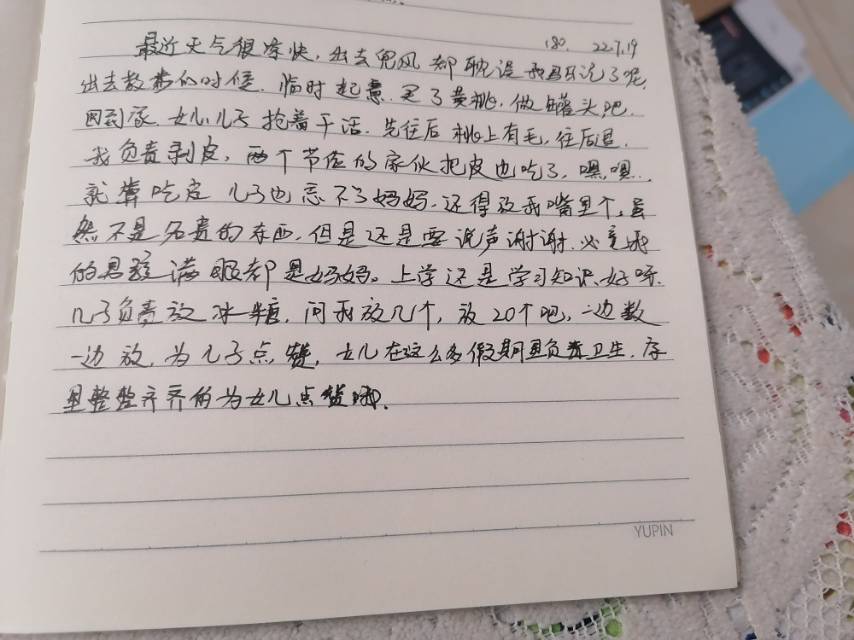 180. 22.7.19
最近天气很凉快,出去兜风都耽误我写日记了呢,
出去散步的时候,临时起意,买了黄桃,做罐头吧,
回到家,女儿儿子抢着干活,先往后 桃上有毛,往后退,
我负责剥皮,两个节俭的家伙把皮也吃了,嘿,嘿,
就算吃皮 儿子也忘不了妈妈,还得放我嘴里个,虽
然不是名贵的东西,但是还是要说声谢谢,必竟我
的男孩满眼都是妈妈。上学还是学习知识好呀.
儿子负责放冰糖,问我放几个,放20个吧,一边数
一边放,为儿子点赞,女儿在这么多假期里负责卫生,
里整整齐齐的为女儿点赞
YUPIN